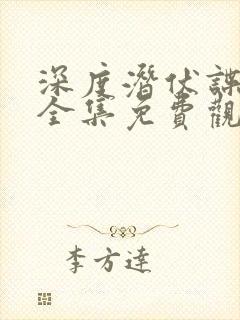 深度潛伏諜
全集免費觀
李方達